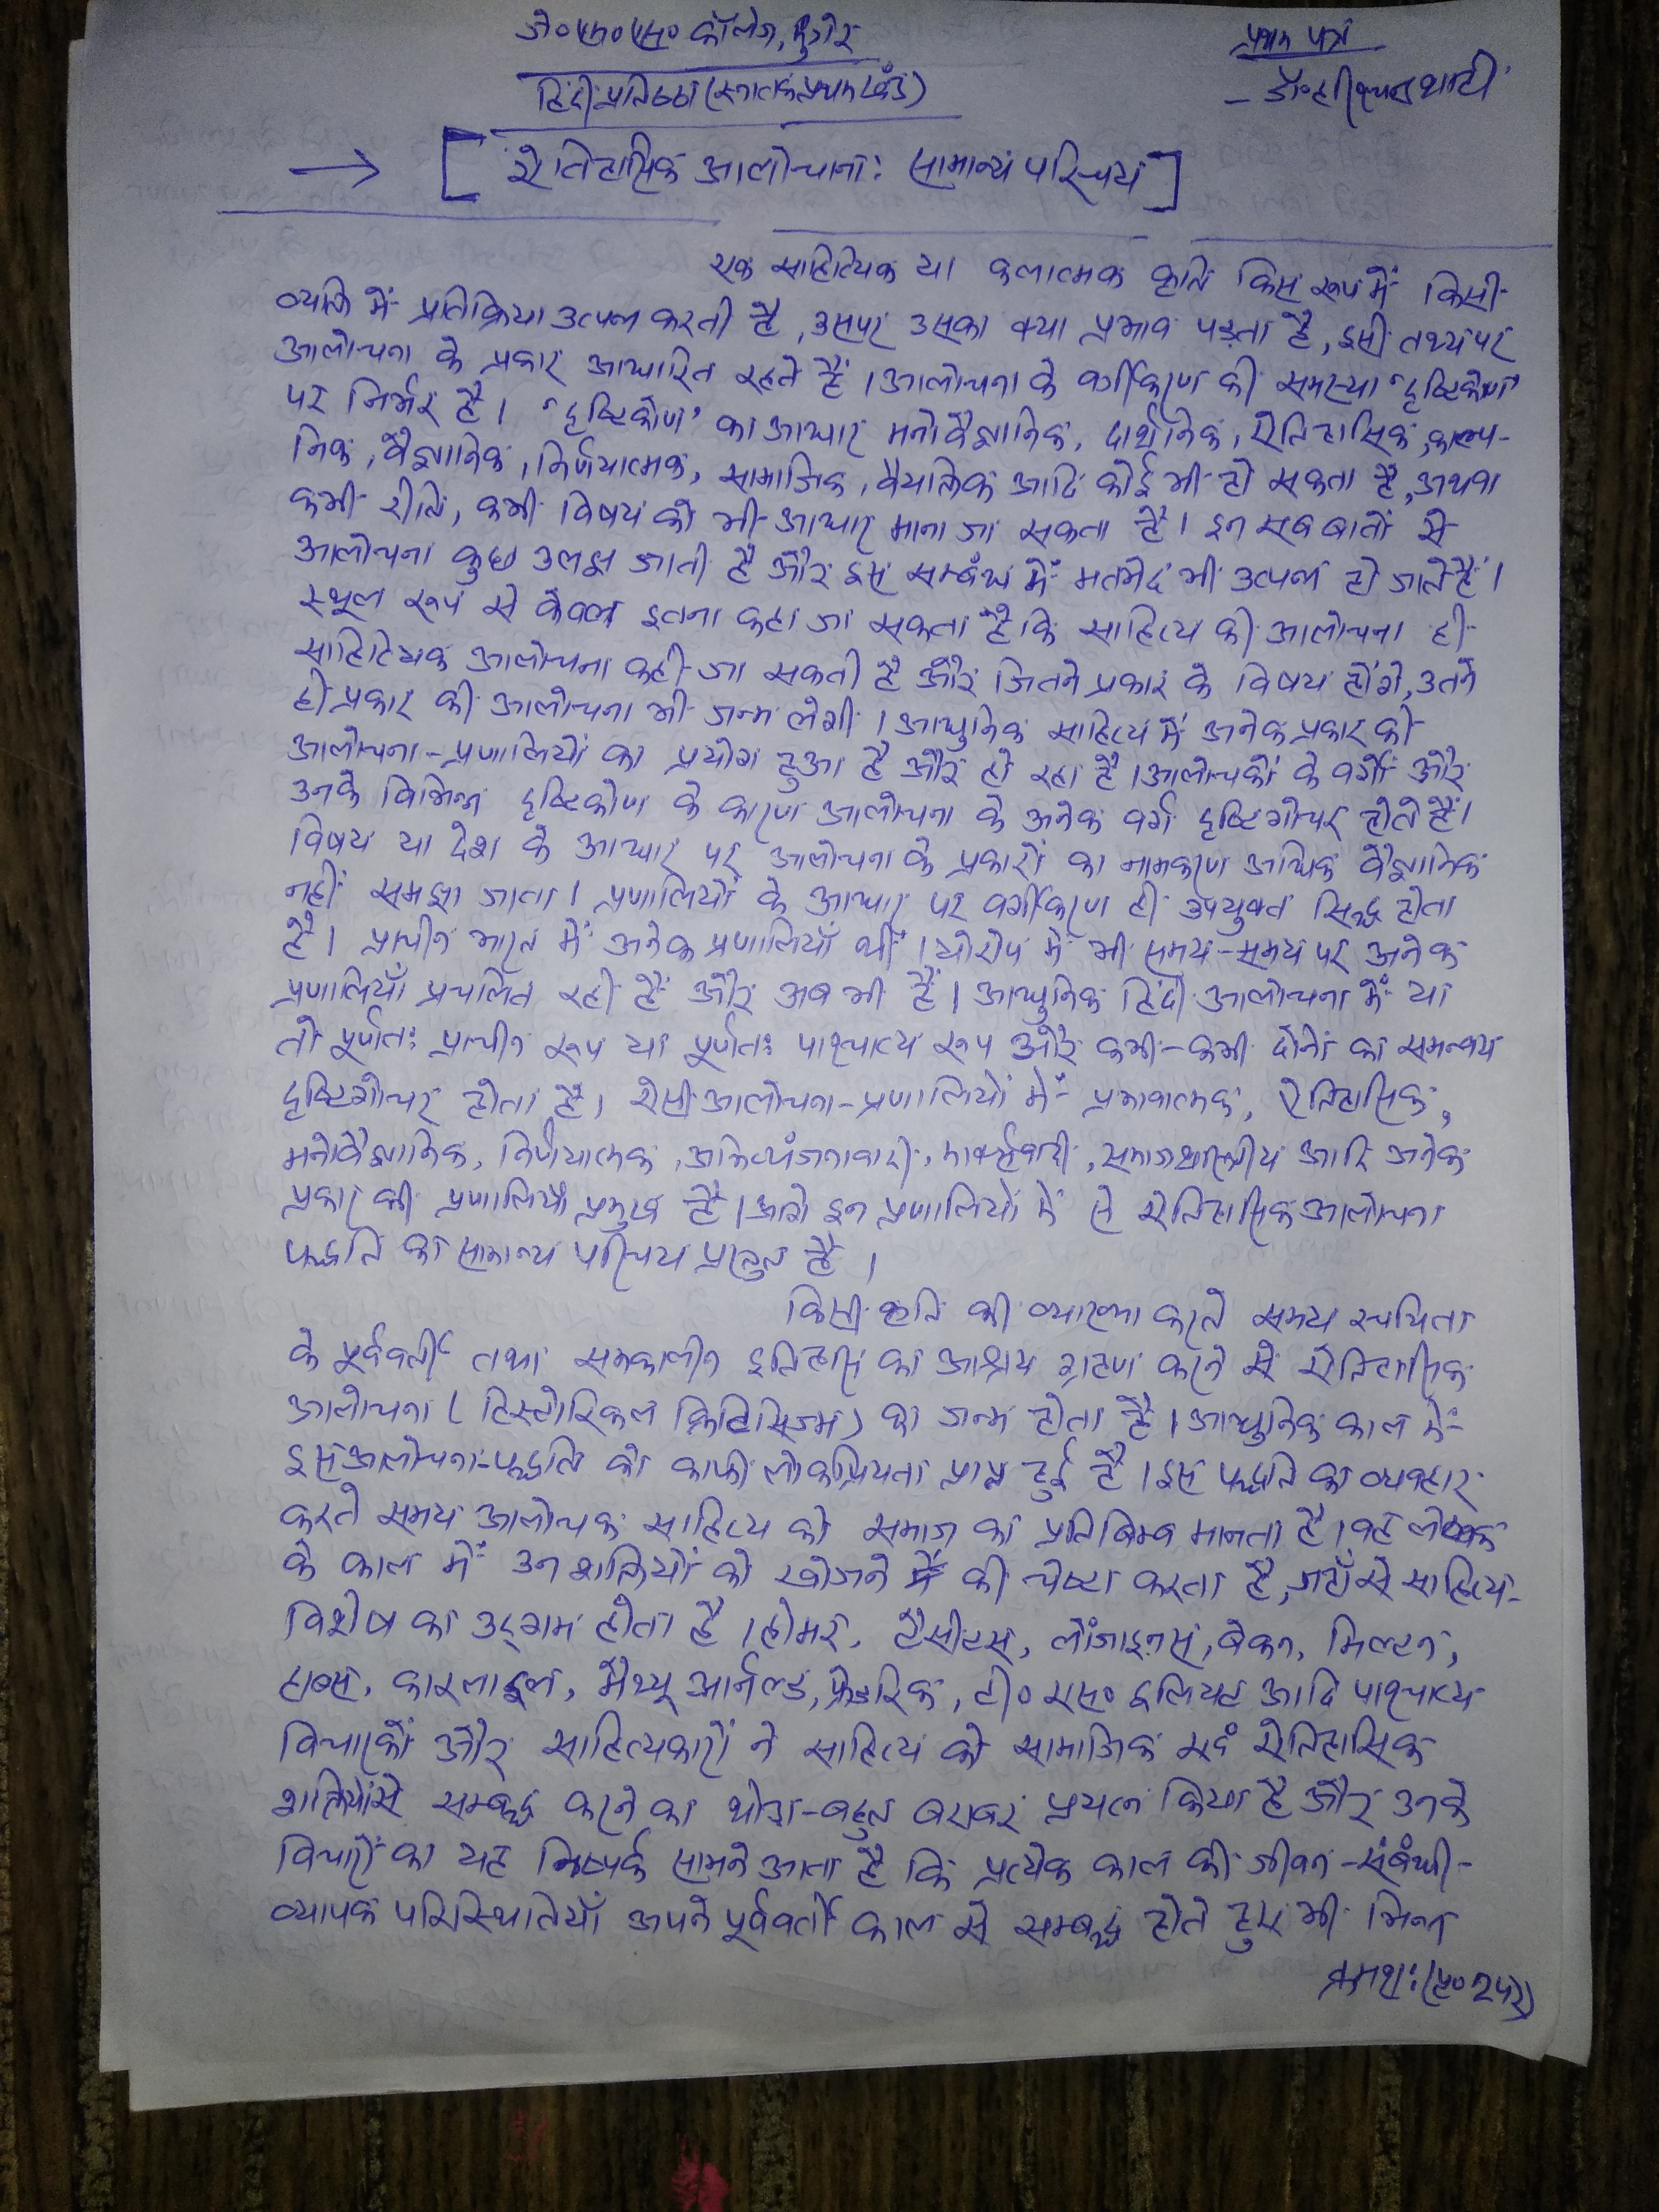 जे०एम०एस० कॉलेज, मुंगेर
प्रथम पत्र
हिंदी प्रतिष्ठा (स्नातक प्रथम खंड)
– डॉ०
→ [ ऐतिहासिक आलोचना: सामान्य परिचय ]
एक साहित्यिक या कलात्मक कृति किस रूप में किसी
व्यक्ति में प्रतिक्रिया उत्पन्न करती है, उसपर उसका क्या प्रभाव पड़ता है, इसी तथ्य पर
आलोचना के प्रकार आधारित रहते हैं। आलोचना के वर्गीकरण की समस्या 'दृष्टिकोण'
पर निर्भर है। 'दृष्टिकोण' का आधार मनोवैज्ञानिक, दार्शनिक, ऐतिहासिक, काल्प-
निक, वैज्ञानिक, निर्णयात्मक, सामाजिक, वैयक्तिक आदि कोई भी हो सकता है, अथवा
कभी रीति, कभी विषय को भी आधार माना जा सकता है। इन सब बातों से
आलोचना कुछ उलझ जाती है और इस सम्बंध में मतभेद भी उत्पन्न हो जाते हैं।
स्थूल रूप से केवल इतना कहा जा सकता है कि साहित्य की आलोचना ही
साहित्यिक आलोचना कही जा सकती है और जितने प्रकार के विषय होंगे, उतने
ही प्रकार की आलोचना भी जन्म लेगी। आधुनिक साहित्य में अनेक प्रकार की
आलोचना-प्रणालियों का प्रयोग हुआ है और हो रहा है। आलोचकों के वर्गों और
उनके विभिन्न दृष्टिकोण के कारण आलोचना के अनेक वर्ग दृष्टिगोचर होते हैं।
विषय या देश के आधार पर आलोचना के प्रकारों का नामकरण अधिक वैज्ञानिक
नहीं समझा जाता। प्रणालियों के आधार पर वर्गीकरण ही उपयुक्त सिद्ध होता
है। प्राचीन भारत में अनेक प्रणालियाँ थीं। योरोप में भी समय-समय पर अनेक
प्रणालियाँ प्रचलित रही हैं और अब भी हैं। आधुनिक हिंदी आलोचना में या
तो पूर्णतः प्राचीन रूप या पूर्णतः पाश्चात्य रूप और कभी-कभी दोनों का समन्वय
दृष्टिगोचर होता है। ऐसी आलोचना-प्रणालियों में प्रभावात्मक, ऐतिहासिक,
मनोवैज्ञानिक, निर्णयात्मक, अभिव्यंजनावादी, मार्क्सवादी, समाजशास्त्रीय आदि अनेक
प्रकार की प्रणालियाँ प्रमुख हैं। आगे इन प्रणालियों में से ऐतिहासिक आलोचना
पद्धति का सामान्य परिचय प्रस्तुत है।
किसी कृति की व्याख्या करते समय रचयिता
के पूर्ववर्ती तथा समकालीन इतिहास का आश्रय ग्रहण करने से ऐतिहासिक
आलोचना (हिस्टोरिकल क्रिटिसिज्म) का जन्म होता है। आधुनिक काल में
इस आलोचना-पद्धति को काफी लोकप्रियता प्राप्त हुई है। इस पद्धति का व्यवहार
करते समय आलोचक साहित्य को समाज का प्रतिबिम्ब मानता है। वह लेखक
के काल में उन शक्तियों को खोजने की चेष्टा करता है, जहाँ से साहित्य-
विशेष का उद्गम होता है। होमर, टैसीटस, लोंजाइनस, बेकन, मिल्टन,
हाब्स, कारलाइल, मैथ्यू आर्नल्ड, फ्रेडरिक, टी० एस० इलियट आदि पाश्चात्य
विचारकों और साहित्यकारों ने साहित्य को सामाजिक एवं ऐतिहासिक
शक्तियों से सम्बद्ध करने का थोड़ा-बहुत बराबर प्रयत्न किया है और उनके
विचारों का यह निष्कर्ष सामने आता है कि प्रत्येक काल की जीवन-संबंधी-
व्यापक परिस्थितियाँ अपने पूर्ववर्ती काल से सम्बद्ध होते हुए भी भिन्न
क्रमशः (पृ० २ पर)